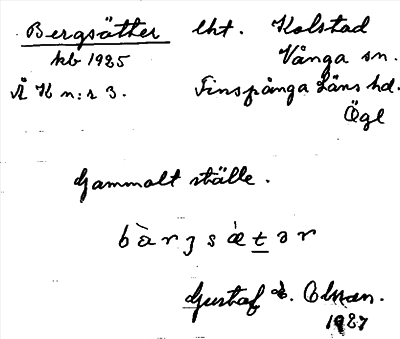 Bergsätter lht. Kolstad
kb 1925 Vånga sn.
Ä K n:r 3. Finspånga Läns hd.
Ögl
Gammalt ställe.
bàrʒsæ̀tər
Gustaf Olsson.
1927